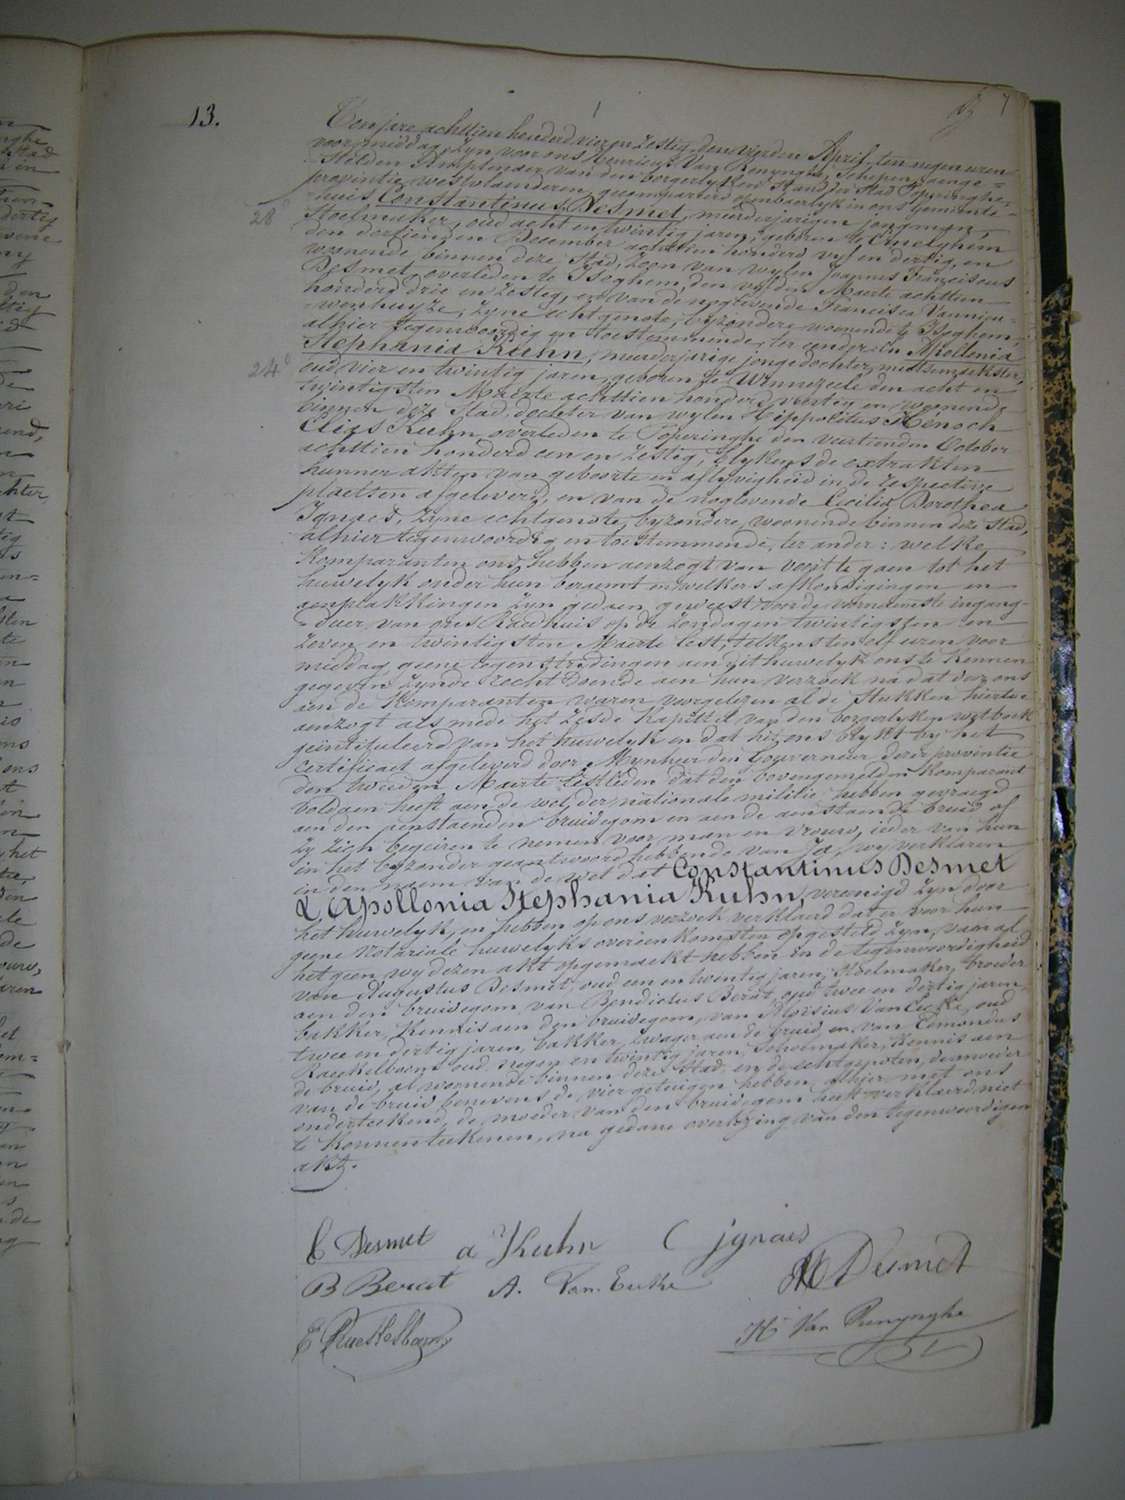 13.
7
Ten jare achttien honderd vier en zestig den vierden April ten negen uren
voormiddag, zyn voor ons Henricus Van Renynghe, Schepen, aenge-
stelden Amptenaer van den borgerlyken Stand der Stad Poperinghe,
provintie westvlaenderen, gecompareerd openbaerlyk in ons Gemeente-
huis Constantinus Desmet, meerderjarigen jongman,
28
Stoelmaker, oud acht en twintig jaren, geboren te Emelghem
den dertienden December achttien honderd vyf en dertig, en
woonende binnen deze Stad, zoon van wylen Joannes Franciscus
Desmet, overleden te Iseghem, den vyfden Maerte achttien
honderd drie en zestig, en van de noglevende Francisca Vannieu-
wenhuyze, zyne echtgenote, byzondere woonende te Iseghem,
alhier tegenwoordig en toestemmende, ter eender: En Apollonia
Stephania Kuhn, meerderjarige jongedochter, mutsemaekster,
24
oud vier en twintig jaren, geboren te Winnezeele den acht en
twintigsten Maerte achttien honderd veertig en woonende
binnen deze Stad, dochter van wylen Hippolitus Hénoch
Elies Kuhn overleden te Poperinghe den veertienden October
achttien honderd een en zestig, blykens de extrakten
hunner akten van geboorte en aflyvigheid in de respective
plaetsen afgeleverd, en van de noglevende Cecilia Dorothea
Ignaes, zyne echtgenote, byzondere, woonende binnen deze Stad,
alhier tegenwoordig en toestemmende, ter ander: welke
Komparanten ons hebben aenzogt van voort te gaen tot het
huwelyk onder hun beraemt en welkers afkondigingen en
aenplakkingen zyn gedaen geweest voor de voornaemste ingang-
deur van ons Raedhuis op de zondagen twintigsten en
zeven en twintigsten Maerte lest, telkens ten elf uren voor
middag, geene tegenstrydingen aen dit huwelyk ons te kennen
gegeven zynde recht doende aen hun verzoek na dat door ons
aen de Komparanten waren voorgelezen al de stukken hiertoe
aenzogt als mede het zesde kapittel van den borgerlyken wetboek
geïntituleerd van het huwelyk en dat het ons blykt by het
certificaet afgeleverd door Mynheer den Gouverneur dezer provintie
den tweeden Maerte lestleden dat den bovengemelden Komparant
voldaen heeft aen de wet der nationale militie hebben gevraegd
aen den aenstaenden bruidegom en aen de aenstaende bruid of
zy zich begeiren te nemen voor man en vrouw, ieder van hun
in het byzonder geantwoord hebbende van Ja, wy verklaren
in den naem van de wet dat Constantinus Desmet
& Apollonia Stephania Kuhn, vereenigd zyn door
het huwelyk, en hebben op ons verzoek verklaerd dat er voor hun
geene Notariele huwelyks overeenkomsten opgesteld zyn, van al
het geen wy dezen akt opgemaekt hebben in de tegenwoordigheid
van Augustus Desmet, oud een en twintig jaren, Stoelmaker, broeder
aen den bruidegom van Bendictus Berat, oud twee en dertig jaren,
bakker, kennis aen den bruidegom, van Aloïsius Van Eecke, oud
twee en dertig jaren, bakker, zwager aen de bruid, en van Edmondus
Raeckelboom oud negen en twintig jaren, Schoenmaker, kennis aen
de bruid, al woonende binnen deze Stad, en de echtgenoten, de moeder
van de bruid benevens de vier getuigen hebben alhier met ons
onderteekend, de moeder van den bruidegom heeft verklaerd niet
te konnen teekenen, na gedane overlezing van den tegenwoordigen
akt.
C Desmet a Kuhn C jgnaes
B Berat A. Van Eecke A Desmet
E Raeckelboom H. Van Renynghe